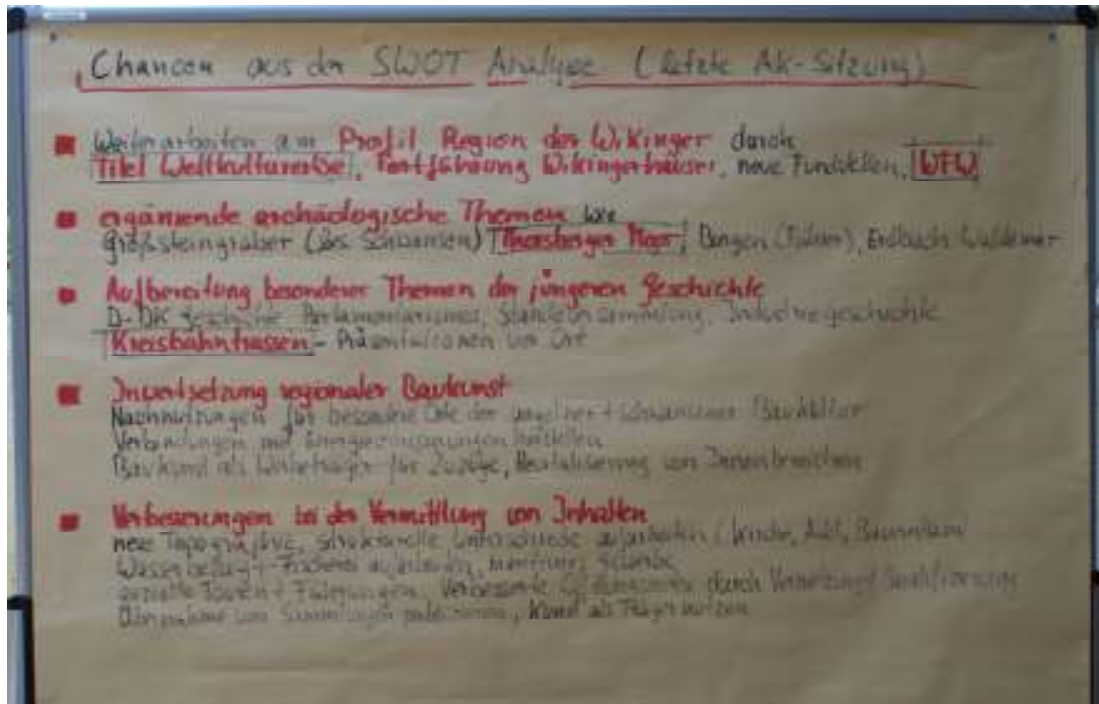 Chancen aus der SWOT Analyse (letzte AK-Sitzung)
Weiterarbeiten am Profil Region der Wikinger durch
Titel Weltkulturerbe, Fortführung Wikingerhäuser, neue Fundstellen, WFW
ergänzende archäologische Themen wie
Großsteingräber (bes. Schwansen) Thorsberger Moor,
Aufbereitung besonderer Themen der jüngeren Geschichte
D-DK Geschichte, Parlamentarismus, Industriegeschichte
Kreisbahntrassen - Präsentationen vor Ort
Inwertsetzung regionaler Baukunst
Nachnutzungen für besondere Orte der Angelner + Schwansener Baukultur
Verbindungen mit herstellen
Baukunst als Werbeträger für Zuzüge, Revitalisierung von Innenbereichen
Verbesserungen bei der Vermittlung von Inhalten
neue Topografie, strukturelle Unterschiede aufarbeiten (Kirche, Adel, Bauerntum
Wasserbezug + Fischerei aufarbeiten, maritimes
Führungen, Verbesserte durch Vernetzung
Übernahme von Sammlungen, Kunst als Träger nutzen